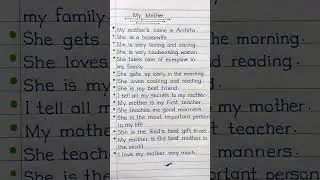 My Mother
My mother's name is Archita.
She is a housewife.
She is very loving and caring.
She is very hardworking woman.
She takes care of everyone in
my family.
She gets up early in the morning.
She loves cooking and reading.
She is my best friend.
I tell all my secrets to my mother.
My mother is my First teacher.
She teaches me good manners.
She is the most important person
in my life.
She is the God's best gift to me.
My mother is the best mother in
the world.
I love my mother very much.